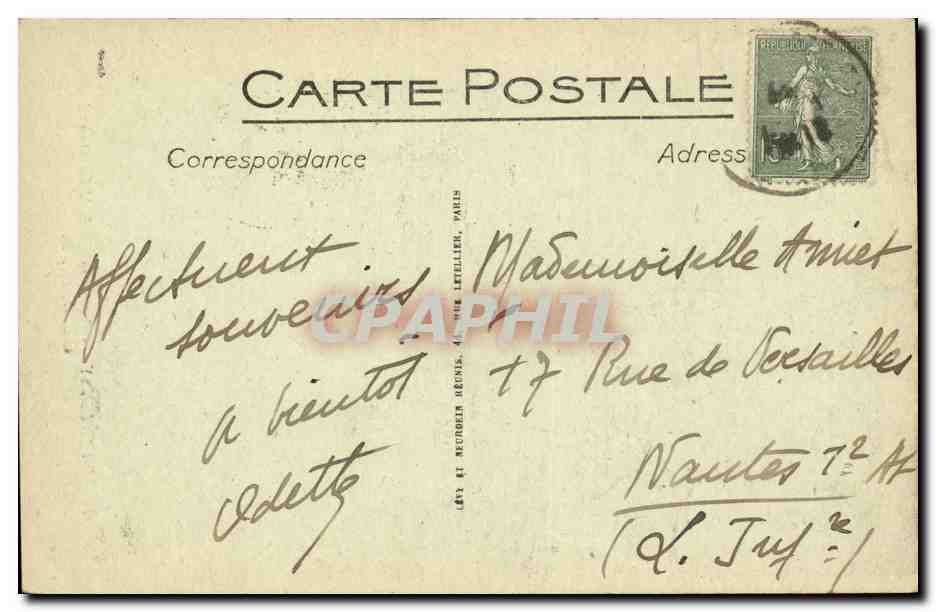 CARTE POSTALE
Correspondance
Adress
REPUBLIQUE FRANÇAISE
15
Affectueux
souvenirs
à bientôt
Odette
LÉVY ET NEURDEIN RÉUNIS, 44, RUE LETELLIER, PARIS
Mademoiselle Amiet
17 Rue de Versailles
Nantes
(L. Infre)
CPAPHIL